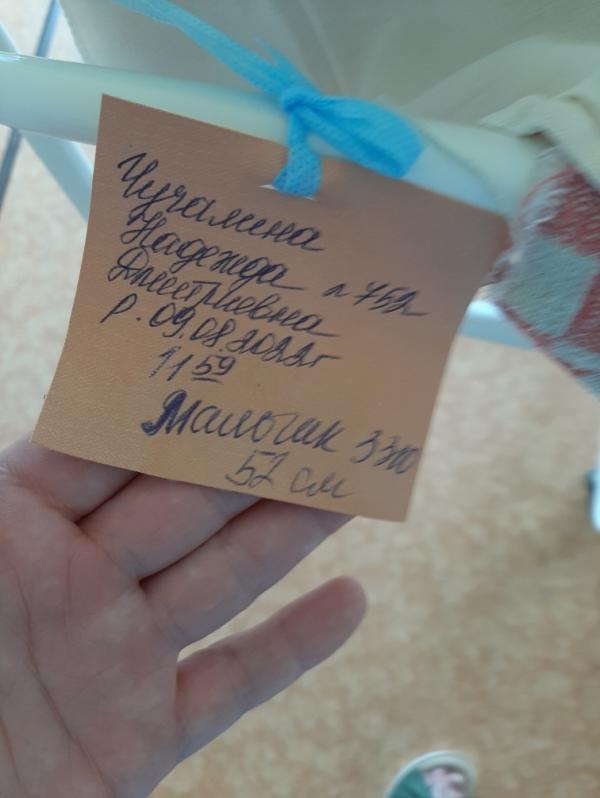 Чучалина
Надежда л 752
Дмитриевна
р. 09.08.2022г
11 59
Мальчик 3300
52 см